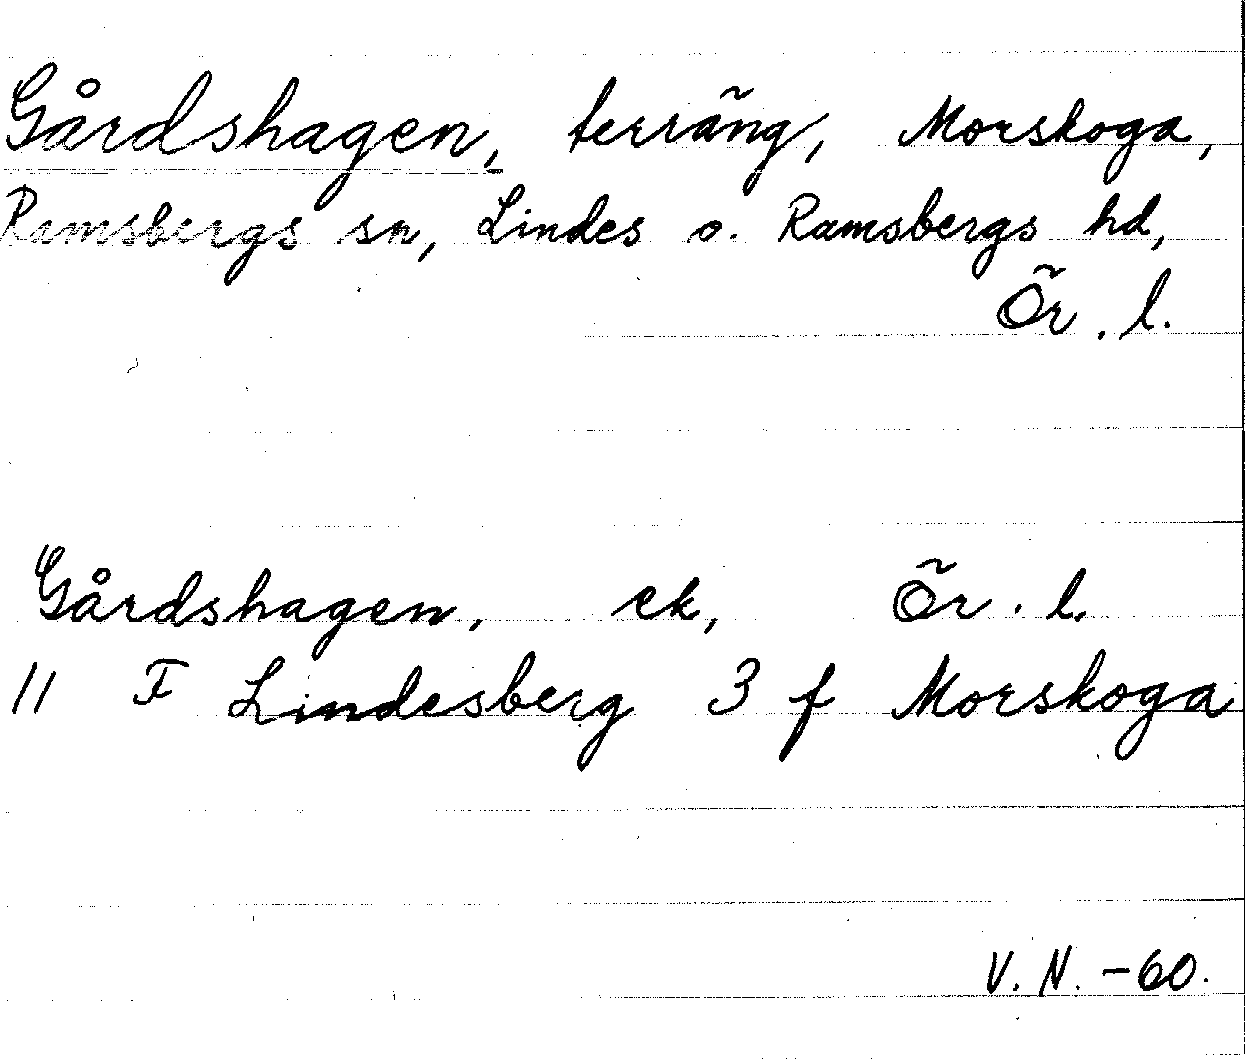 Gårdshagen, terräng, Morskoga,
Ramsbergs sn, Lindes o. Ramsbergs hd,
Ör. l.
Gårdshagen, ek, Ör. l.
11 F Lindesberg 3 f Morskoga
V. N. -60.